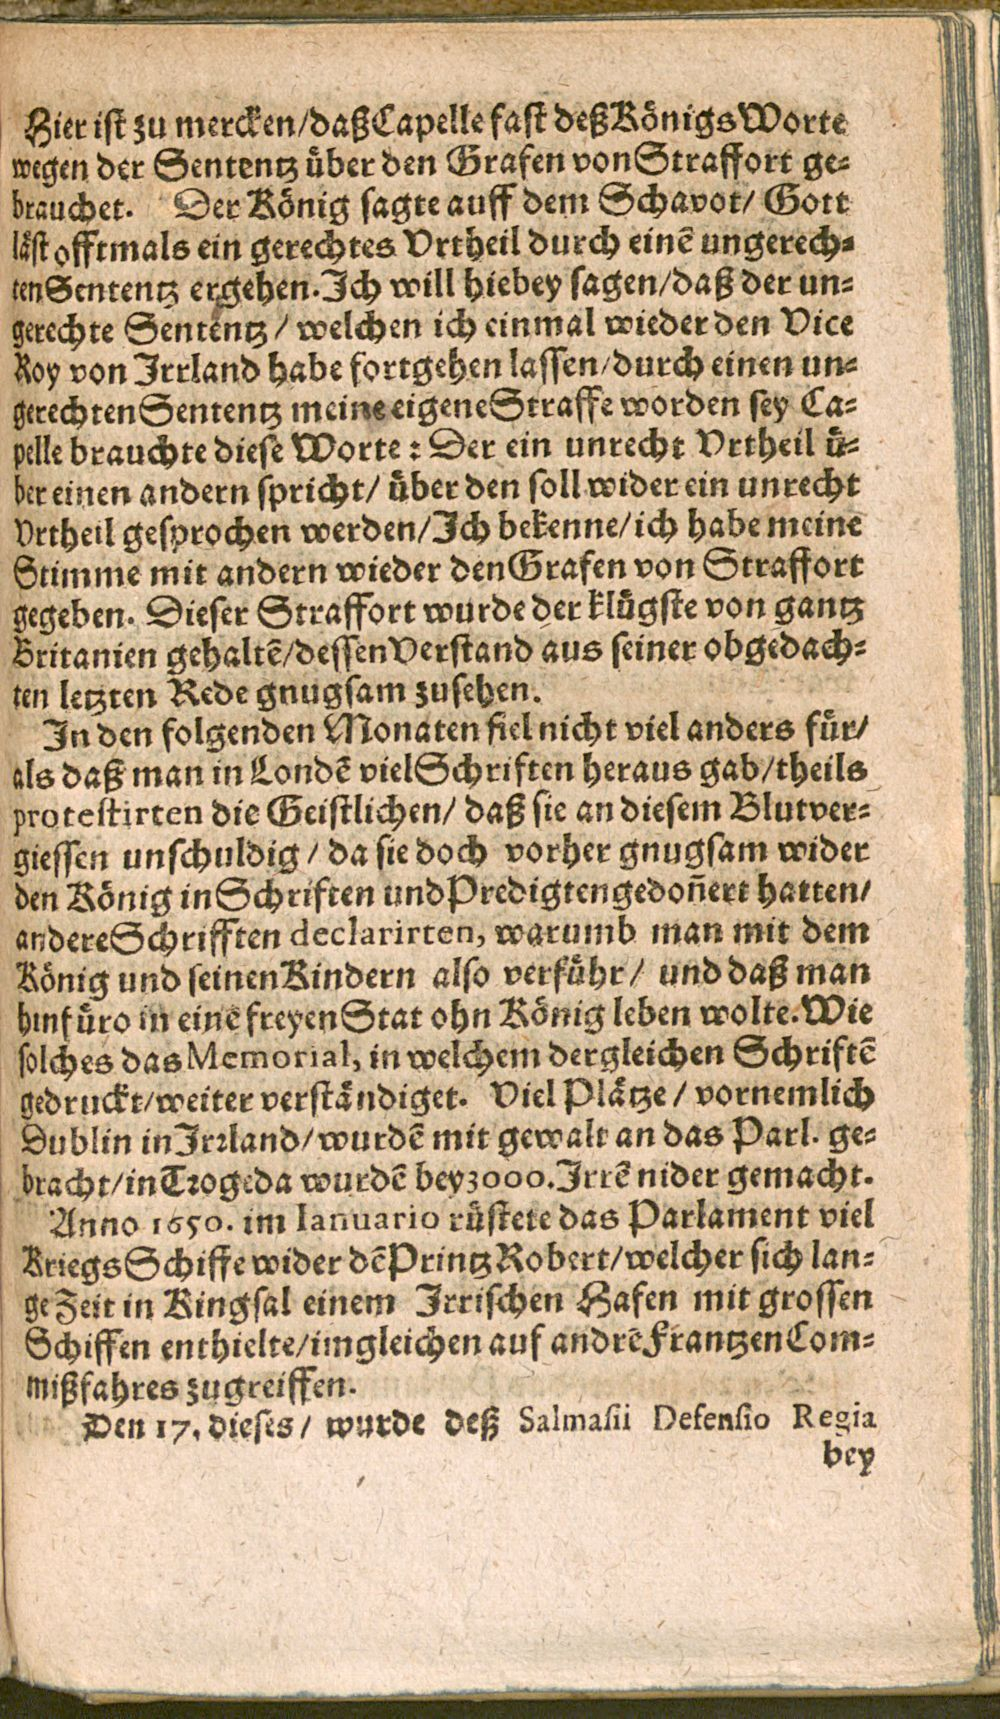 Hier ist zu mercken/daß Capelle fast deß Königs Worte
wegen der Sententz über den Grafen von Straffort ge-
brauchet. Der König sagte auff dem Schavot/ Gott
läst offtmals ein gerechtes Vrtheil durch einē ungerech-
ten Sententz ergehen. Ich will hiebey sagen/daß der un-
gerechte Sententz / welchen ich einmal wieder den Vice
Roy von Irrland habe fortgehen lassen/durch einen un-
gerechten Sententz meine eigene Straffe worden sey Ca-
pelle brauchte diese Worte: Der ein unrecht Vrtheil ü-
ber einen andern spricht/ über den soll wider ein unrecht
Vrtheil gesprochen werden/Ich bekenne/ich habe meine
Stimme mit andern wieder den Grafen von Straffort
gegeben. Dieser Straffort wurde der klügste von gantz
Britanien gehaltē/dessen Verstand aus seiner obgedach-
ten letzten Rede gnugsam zusehen.
In den folgenden Monaten fiel nicht viel anders für/
als daß man in Londē viel Schriften heraus gab/theils
protestirten die Geistlichen/ daß sie an diesem Blutver-
giessen unschuldig / da sie doch vorher gnugsam wider
den König in Schriften und Predigten gedoñert hatten/
andere Schrifften declarirten, warumb man mit dem
König und seinen Kindern also verführ/ und daß man
hinfüro in einē freyen Stat ohn König leben wolte. Wie
solches das Memorial, in welchem dergleichen Schriftē
gedruckt/weiter verständiget. Viel Plätze / vornemlich
Dublin in Irrland/wurdē mit gewalt an das Parl. ge-
bracht/in Trogeda wurdē bey 3000. Irrē nider gemacht.
Anno 1650. im Ianuario rüstete das Parlament viel
Kriegs Schiffe wider dē Printz Robert/welcher sich lan-
ge Zeit in Kingsal einem Irrischen Hafen mit grossen
Schiffen enthielte/imgleichen auf andrē Frantzen Com-
mißfahres zugreiffen.
Den 17. dieses/ wurde deß Salmasii Defensio Regia
bey